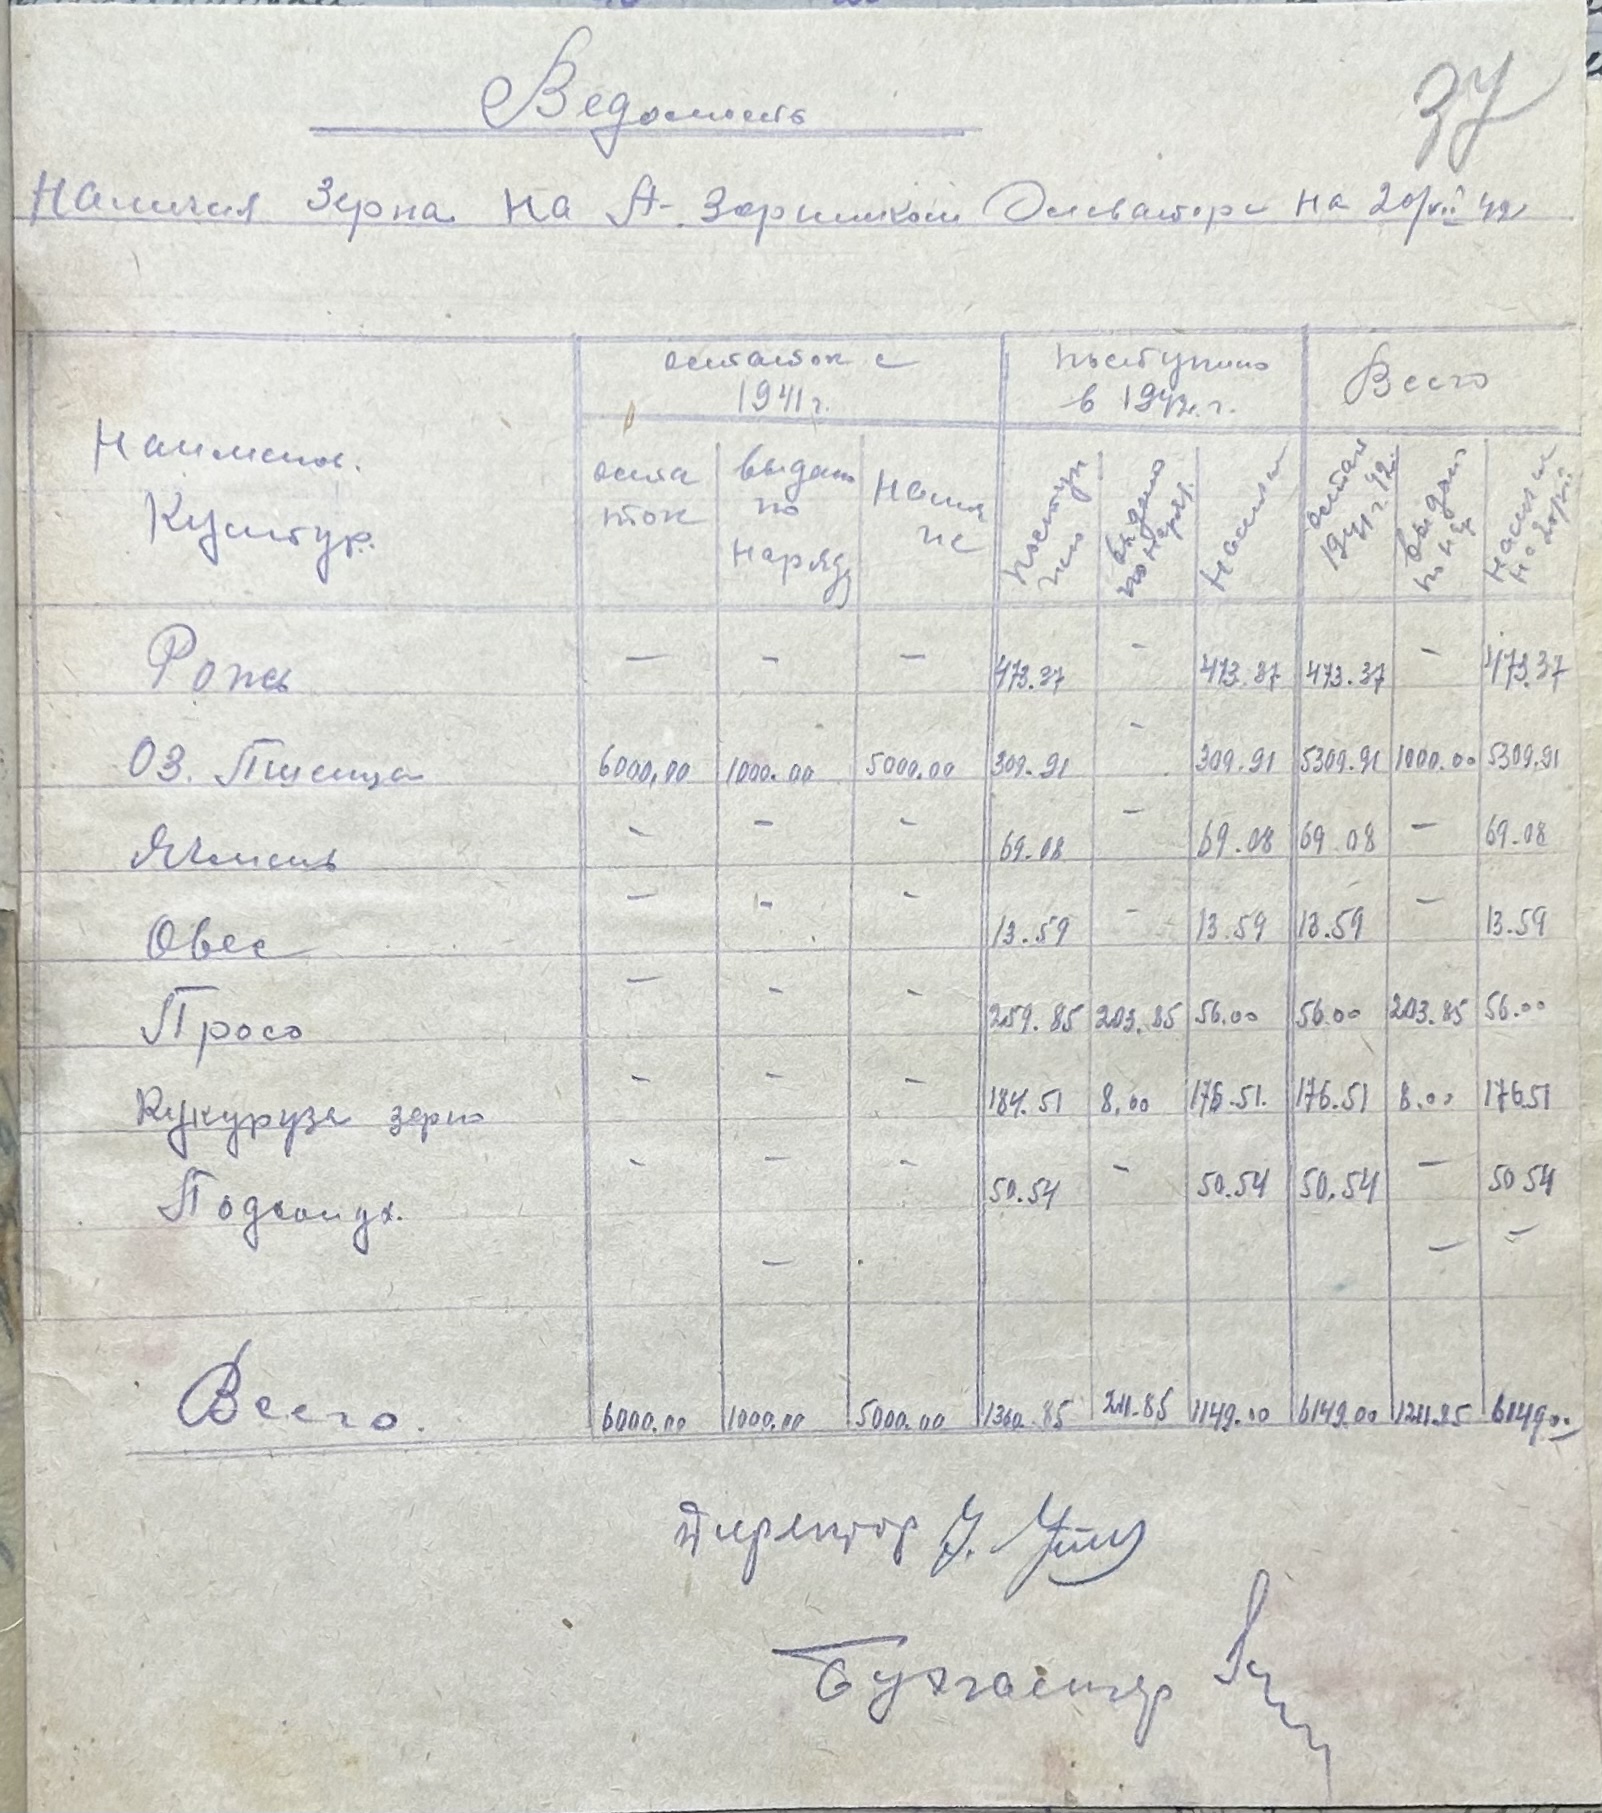 37
Ведомость
Наличия Зерна на А-Зоринском Элеваторе на 20/XII 42
Наименов. Культур.
остаток с 1941 г.
поступило в 1942 г.
Всего
остаток
выдано по наряду
Наличие
поступило
выдано по наряд.
Наличии
остат 1941 г. 42
выдано по нар
Наличии на 20/XII
Рожь — — — 473.37 — 473.37 473.37 — 473.37
Оз. Пшеница 6000,00 1000.00 5000.00 309.91 — 309.91 5309.91 1000.00 5309.91
Ячмень — — — 69.08 — 69.08 69 08 — 69.08
Овес — — — 13.59 — 13.59 13.59 — 13.59
Просо — — — 259.85 203.85 56.00 56.00 203.85 56.00
Кукуруза зерно — — — 184.51 8.00 176.51. 176.51 8.00 176.51
Подсолнух. — — — 50.54 — 50.54 50.54 — 50 54
— — —
Всего. 6000.00 1000.00 5000.00 1360.85 211.85 1149.00 6149.00 1211.85 6149.00
Директор
Бухгалтер